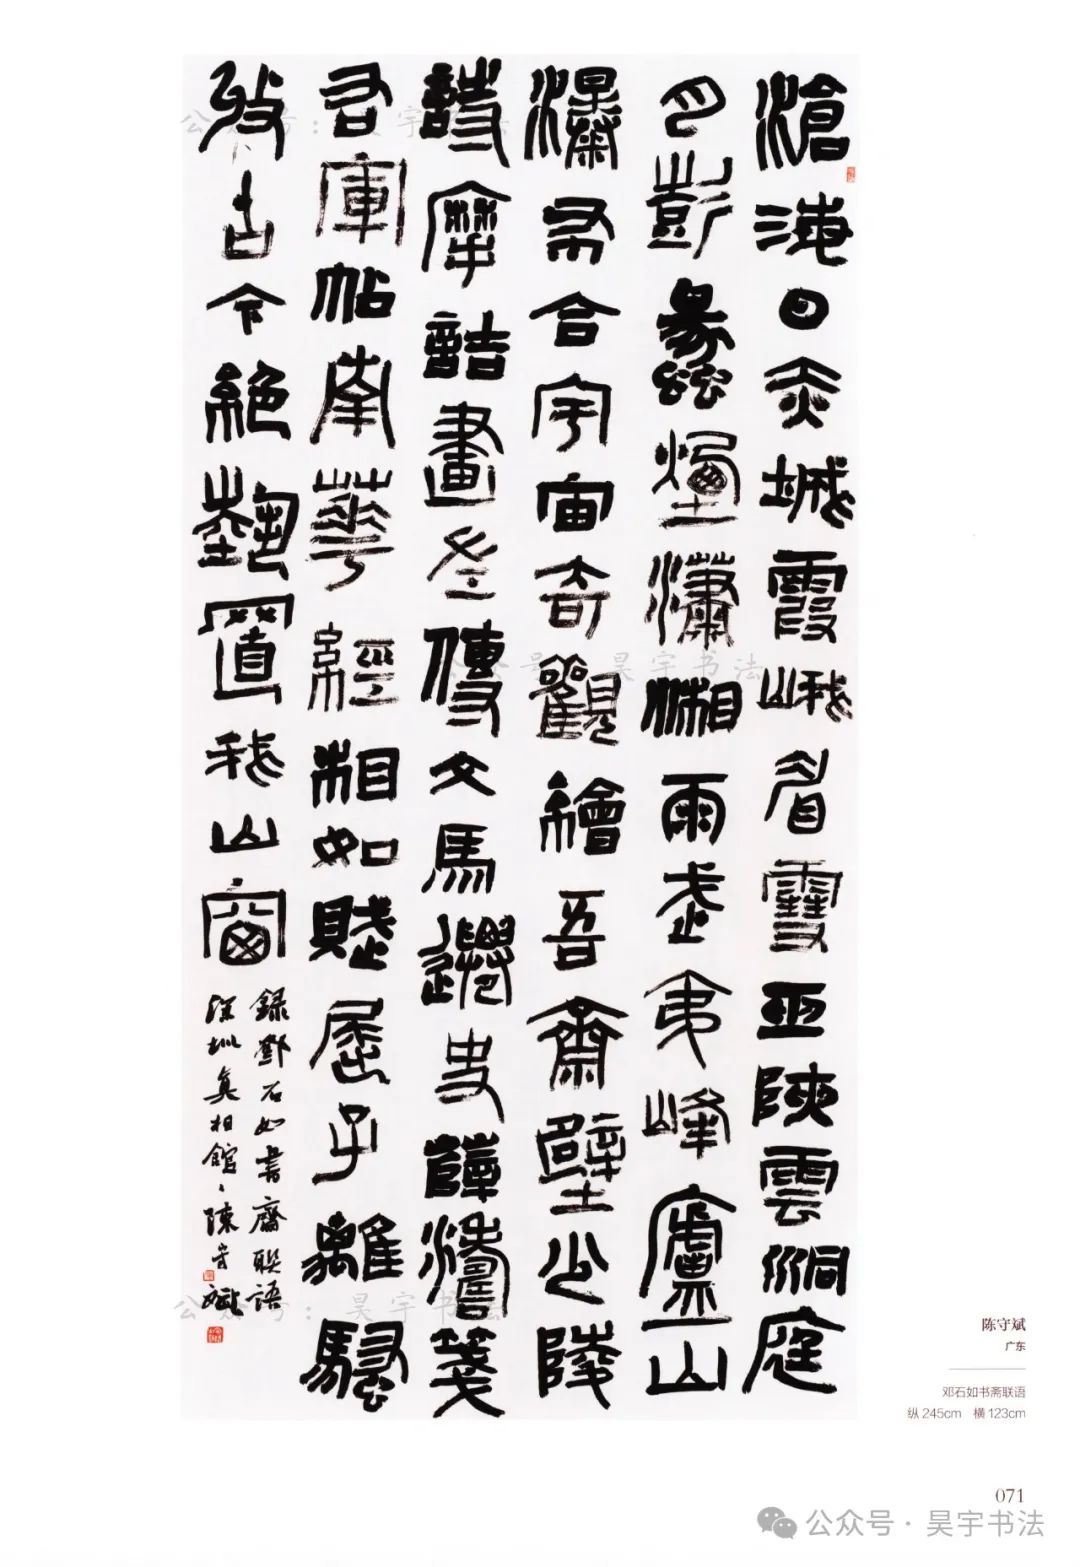 滄海日赤城霞峨眉雪巫陝雲洞庭
月彭蠡煙瀟湘雨武夷峰廬山
瀑布合宇宙奇觀繪吾齋壁少陵
詩摩詰畫左傳文馬遷史薛濤箋
右軍帖南華經相如賦屈子離騷
收古今絕藝置我山窗
錄鄧石如書齋聯語
深圳真柏館陳守斌
陈守斌
广东
邓石如书斋联语
纵 245cm 横 123cm
071
公众号：昊宇书法
公众号：昊宇书法
公众号：昊宇书法
公众号 · 昊宇书法